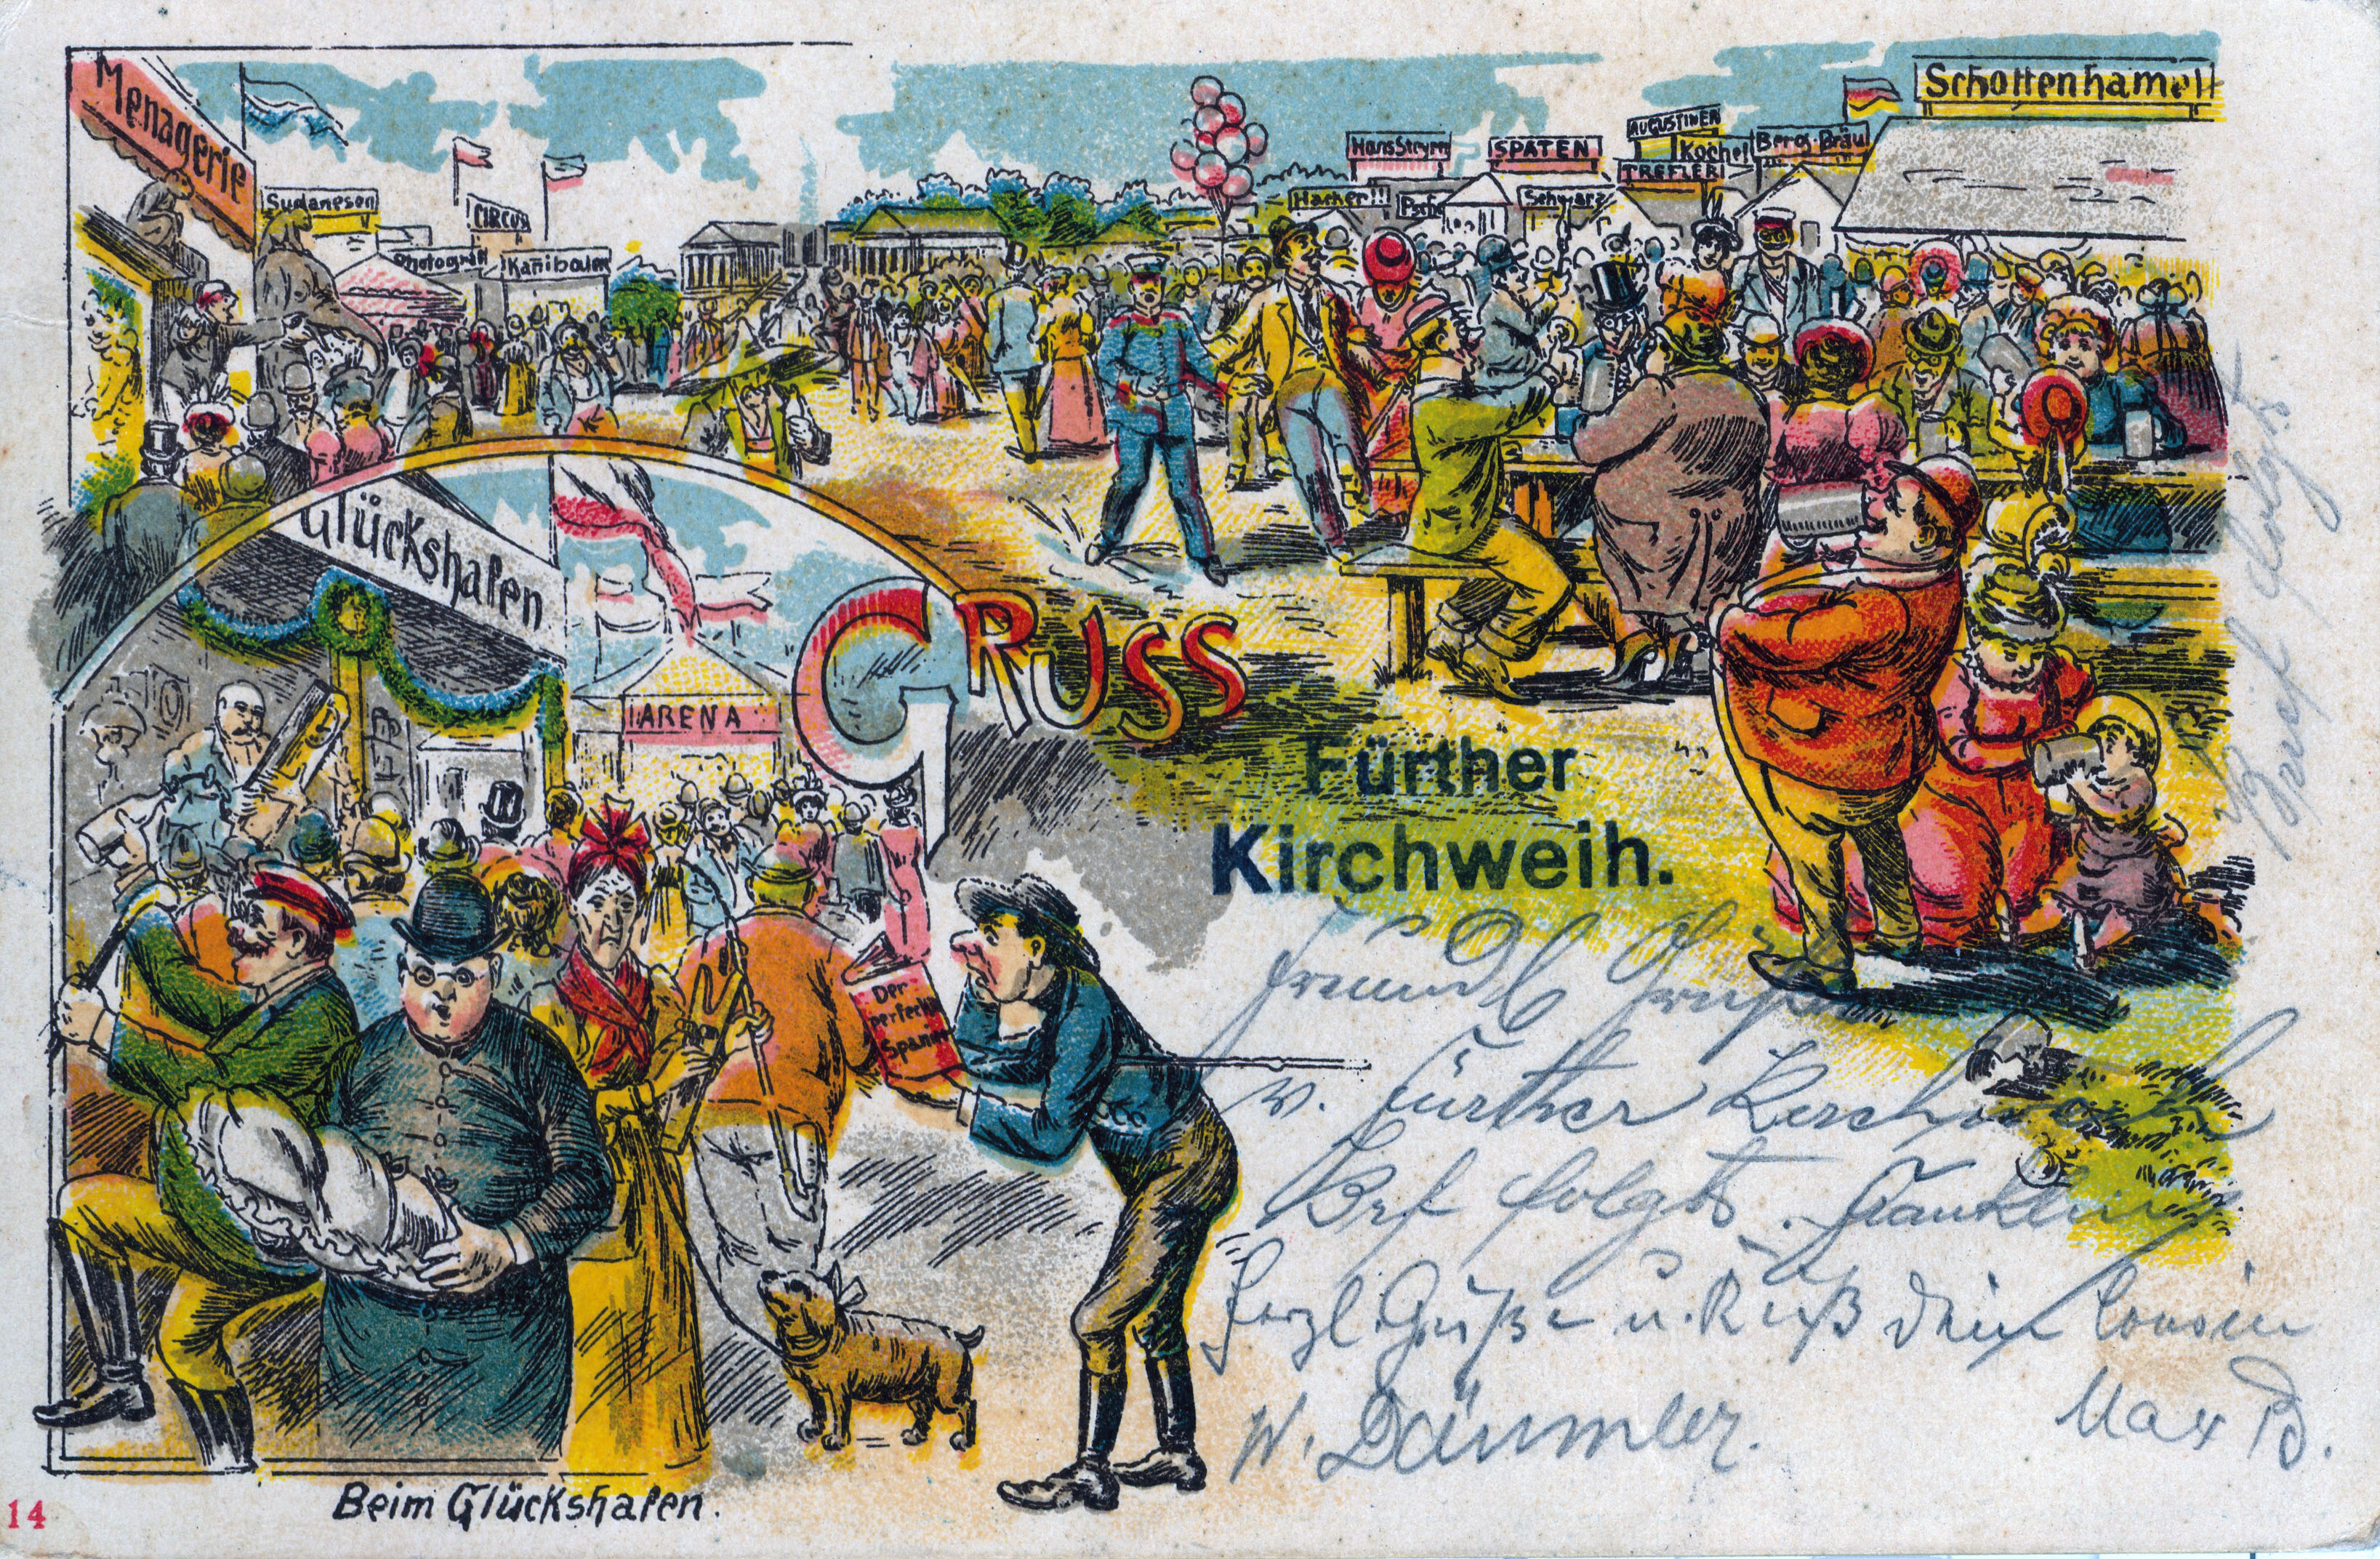 Menagerie
Sudanesen
CIRCUS
Photograph
Kanibalen
Hans Steyrer
SPATEN
AUGUSTINER
Kochel
Berg-Bräu
TREFLER
Schottenhamel
Hacker!!
Pscho
Schwarz
Glückshafen
ARENA
GRUSS
Fürther
Kirchweih.
Der
perfecte
Spanier
Freundl Grüße
v. Fürther Kirchweih
Brf folgt.
Herzl. Grüße u. Kuß dein Cousin
Max B.
W. Däumler.
Brief folgt
Beim Glückshafen.
14